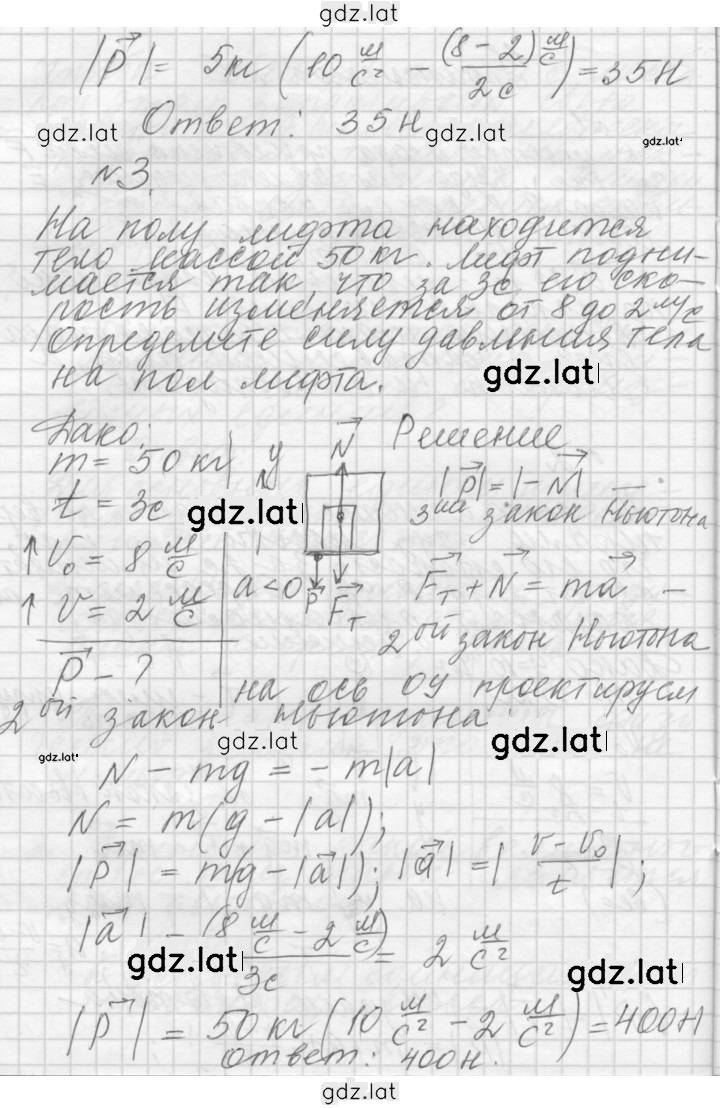 gdz.lat
|P⃗| = 5кг (10 м/с² − (8 − 2) м/с / 2с) = 35Н
gdz.lat Ответ: 35Н gdz.lat gdz.lat
№3.
На полу лифта находится
тело массой 50 кг. Лифт подни-
мается так что за 3с его ско-
рость изменяется от 8 до 2 м/с
Определите силу давления тела
на пол лифта. gdz.lat
Дано: N⃗ Решение
m = 50 кг y |P⃗| = |−N⃗| —
t = 3с gdz.lat 3ий закон Ньютона
↑ V₀ = 8 м/с
↑ V = 2 м/с a < 0 P⃗ F⃗т F⃗т + N⃗ = ma⃗ —
2ой закон Ньютона
P⃗ − ? на ось ОУ проектируем
2ой закон Ньютона
gdz.lat gdz.lat gdz.lat
N − mg = − m|a|
N = m(g − |a|);
|P⃗| = m(g − |a⃗|); |a⃗| = |(v − v₀)/t|;
|a⃗| = (8 м/с − 2 м/с)/3с = 2 м/с²
gdz.lat gdz.lat
|P⃗| = 50 кг (10 м/с² − 2 м/с²) = 400Н
ответ: 400Н.
gdz.lat